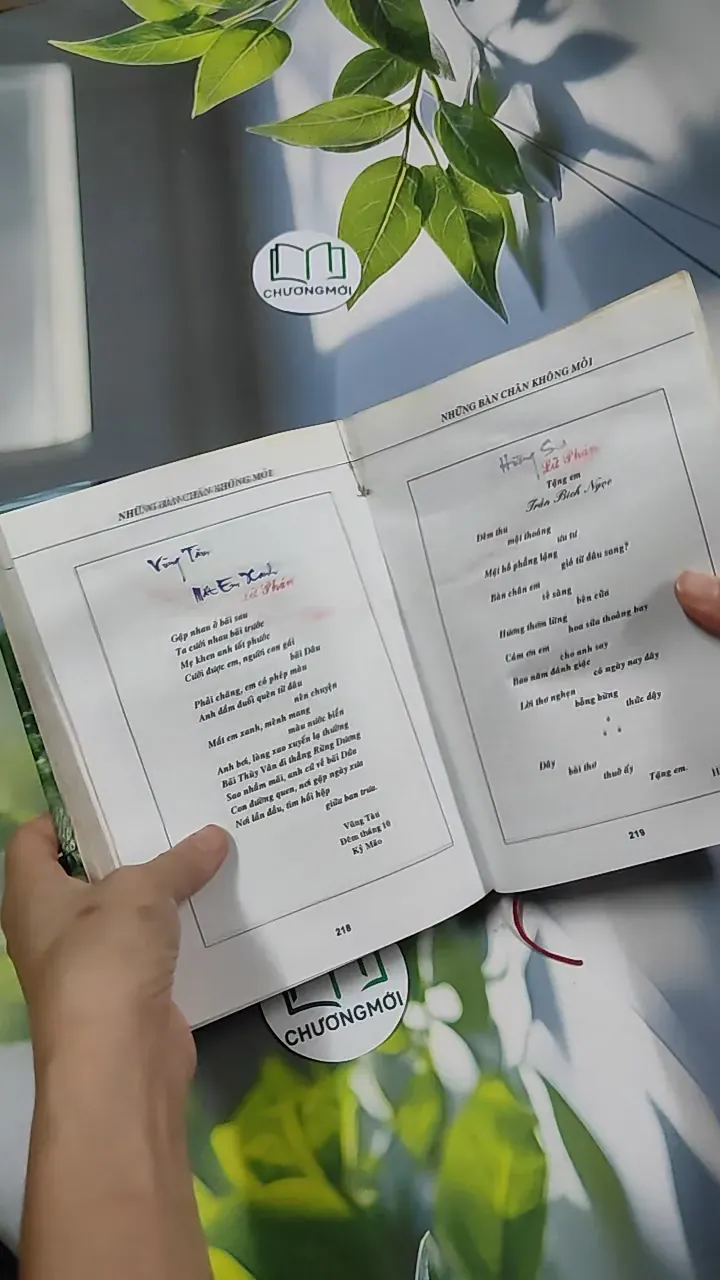 CHƯƠNGMỚI
NHỮNG BÀN CHÂN KHÔNG MỎI
Vũng Tàu
Mắt Em Xanh
Lữ Phán
Gặp nhau ở bãi sau
Ta cười nhau bãi trước
Mẹ khen anh tốt phước
Cưới được em, người con gái
bãi Dâu
Phải chăng, em có phép màu
Anh đắm đuối quên từ đâu
nên chuyện
Mắt em xanh, mênh mang
màu nước biển
Anh bơi, lòng xao xuyến lạ thường
Bãi Thùy Vân đi thẳng Rừng Dương
Sao nhầm mãi, anh cứ về bãi Dứa
Con đường quen, nơi gặp ngày xưa
Nơi lần đầu, tim hồi hộp
giữa ban trưa.
Vũng Tàu
Đêm tháng 10
Kỷ Mão
218
NHỮNG BÀN CHÂN KHÔNG MỎI
Hương Sữ
Lữ Phán
Tặng em
Trần Bích Ngọc
Đêm thu
một thoáng
ưu tư
Mặt hồ phẳng lặng
gió từ đâu sang?
Bàn chân em
rẽ sàng
bên cửa
Hương thơm lừng
hoa sữa thoảng bay
Cám ơn em
cho anh say
Bao năm đánh giặc
có ngày nay đây
Lời thơ nghẹn
bỗng bừng
thức dậy
Đây
bài thơ
thuở ấy
Tặng em.
219
CHƯƠNGMỚI